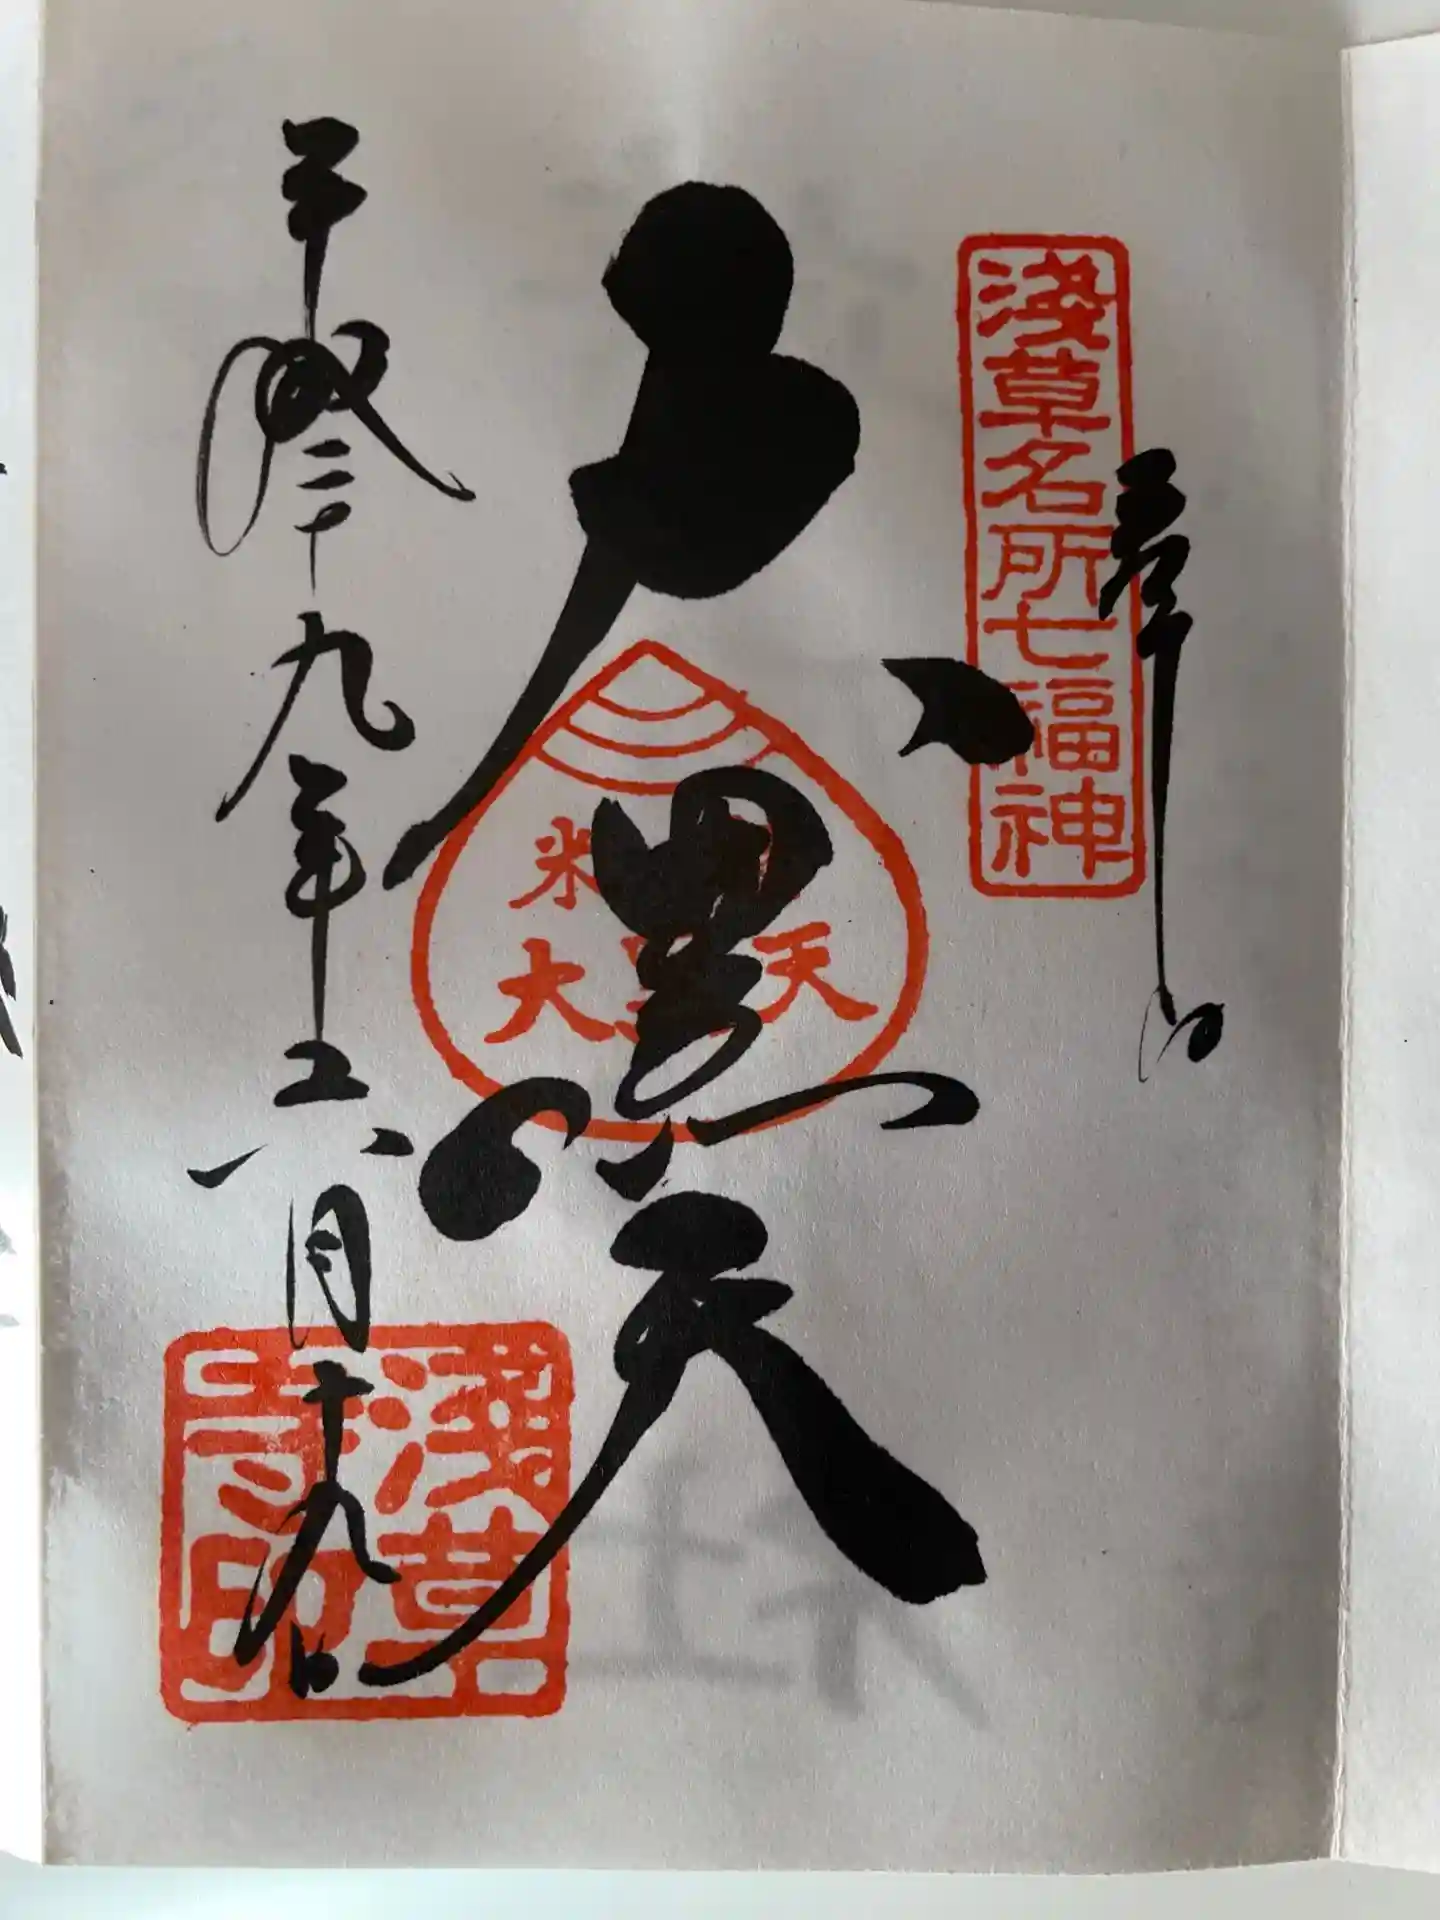 浅草名所七福神
奉拝
大黒天
米
大黒天
平成二十九年六月十九日
浅草寺印